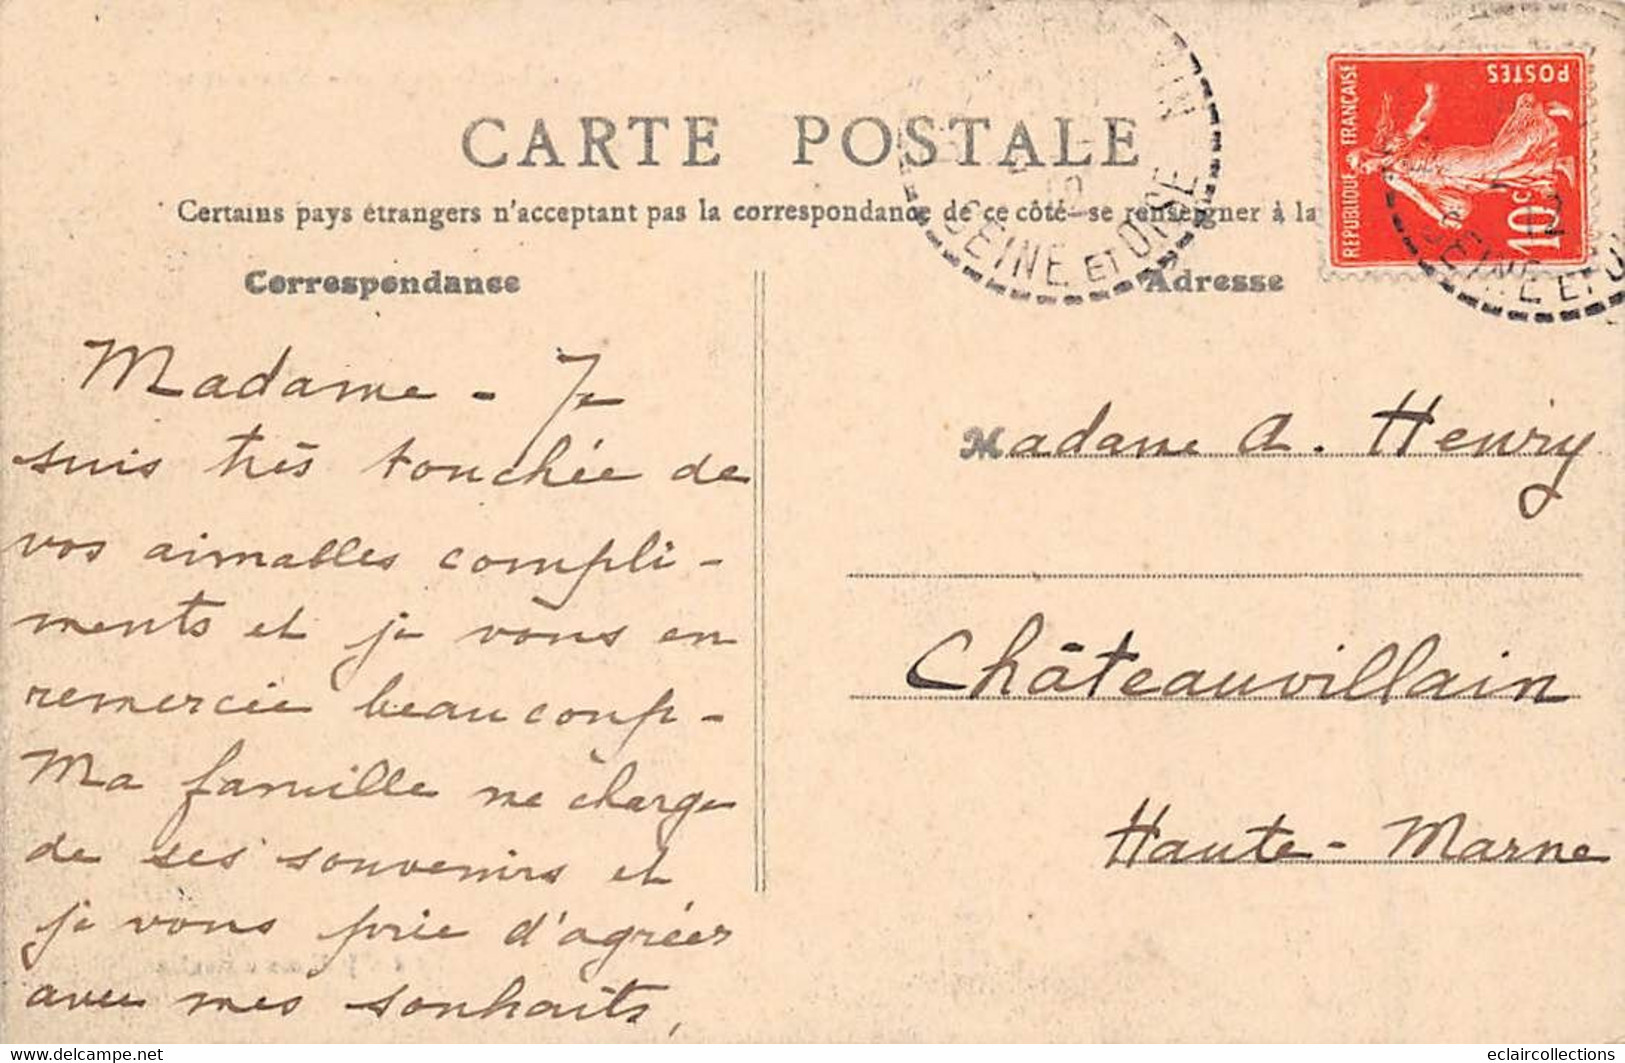 CARTE POSTALE
Certains pays étrangers n'acceptent pas la correspondance de ce côté se renseigner à la
Correspondance
Madame - Je
suis très touchée de
vos aimables compli-
ments et je vous en
remercie beaucoup -
Ma famille me charge
de ses souvenirs et
je vous prie d'agréer
avec mes souhaits,
Adresse
Madame A. Henry
Châteauvillain
Haute-Marne
SEINE ET OISE
REPUBLIQUE FRANÇAISE
POSTES
10c
SEINE ET O
eclaircollections
www.delcampe.net